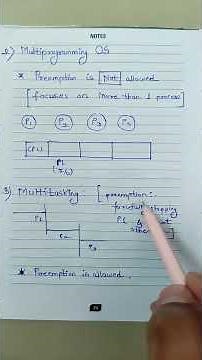 NOTES
2) Multiprogramming OS
* Preemption is Not allowed
[focuses on more than 1 process]
P1 P2 P3 P4
CPU
P1
(I/O)
3) Multitasking: [preemption:
forceful stopping
P1
P1
P2
P3
* Preemption is allowed.